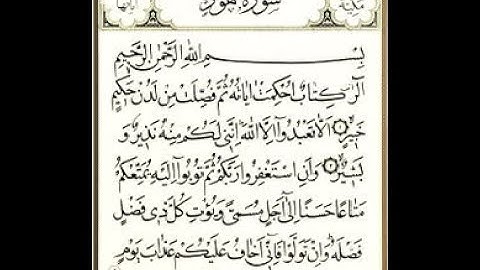 سُورَةُ هُودٍ
بِسْمِ اللّٰهِ الرَّحْمٰنِ الرَّحِيمِ
الٓرٰ كِتَابٌ اُحْكِمَتْ اٰيَاتُهُ ثُمَّ فُصِّلَتْ مِنْ لَدُنْ حَكِيمٍ
خَبِيرٍ اَلَّا تَعْبُدُٓوا اِلَّا اللّٰهَ اِنَّنِي لَكُمْ مِنْهُ نَذِيرٌ وَ
بَشِيرٌ وَاَنِ اسْتَغْفِرُوا رَبَّكُمْ ثُمَّ تُوبُٓوا اِلَيْهِ يُمَتِّعْكُمْ
مَتَاعًا حَسَنًا اِلٰٓى اَجَلٍ مُسَمًّى وَيُؤْتِ كُلَّ ذِي فَضْلٍ
فَضْلَهُ وَاِنْ تَوَلَّوْا فَاِنِّٓي اَخَافُ عَلَيْكُمْ عَذَابَ يَوْمٍ